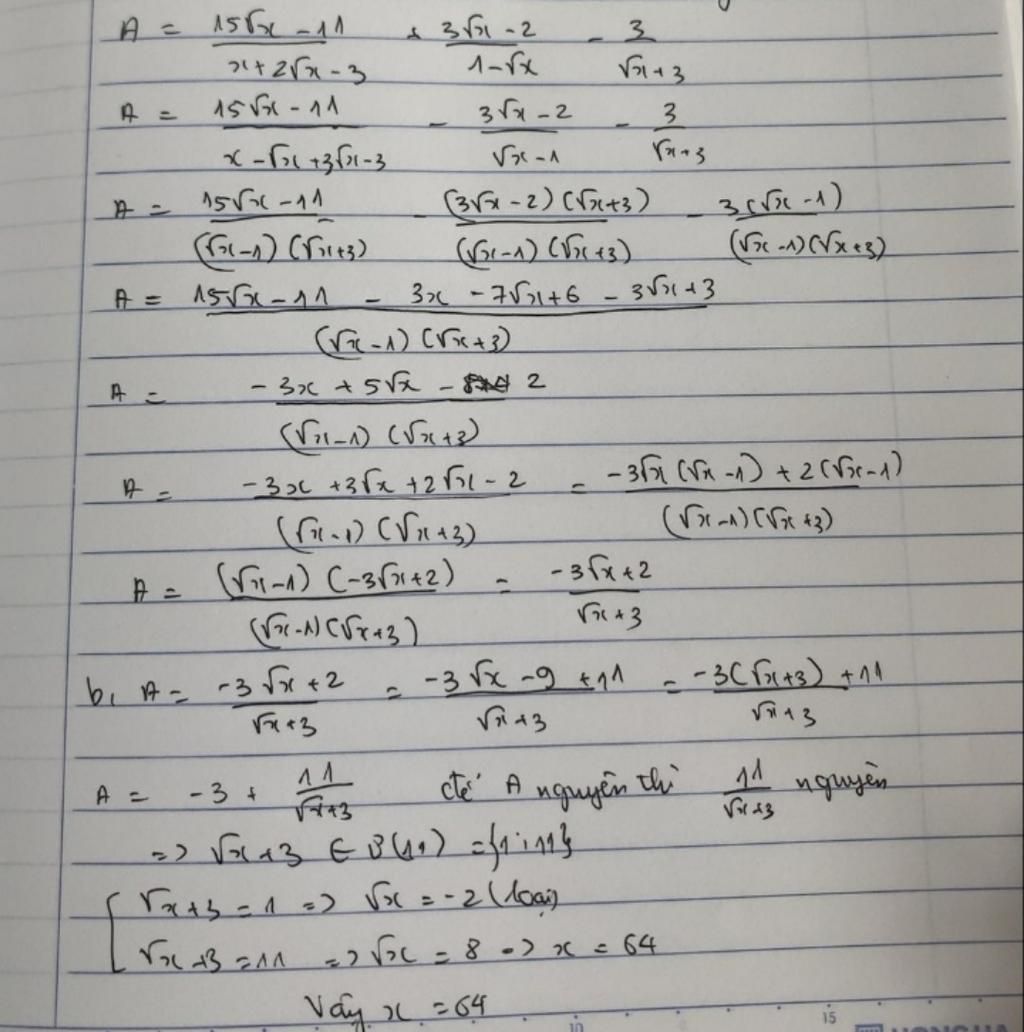 A = (15√x - 11)/(x + 2√x - 3) + (3√x - 2)/(1 - √x) - 3/(√x + 3)
A = (15√x - 11)/(x - √x + 3√x - 3) - (3√x - 2)/(√x - 1) - 3/(√x + 3)
A = (15√x - 11)/((√x - 1)(√x + 3)) - ((3√x - 2)(√x + 3))/((√x - 1)(√x + 3)) - (3(√x - 1))/((√x - 1)(√x + 3))
A = (15√x - 11 - 3x - 7√x + 6 - 3√x + 3)/((√x - 1)(√x + 3))
A = (-3x + 5√x - 2)/((√x - 1)(√x + 3))
A = (-3x + 3√x + 2√x - 2)/((√x - 1)(√x + 3)) = (-3√x(√x - 1) + 2(√x - 1))/((√x - 1)(√x + 3))
A = ((√x - 1)(-3√x + 2))/((√x - 1)(√x + 3)) = (-3√x + 2)/(√x + 3)
b, A = (-3√x + 2)/(√x + 3) = (-3√x - 9 + 11)/(√x + 3) = (-3(√x + 3) + 11)/(√x + 3)
A = -3 + 11/(√x + 3) để A nguyên thì 11/(√x + 3) nguyên
=> √x + 3 ∈ Ư(11) = {1; 11}
[ √x + 3 = 1 => √x = -2 (loại)
√x + 3 = 11 => √x = 8 => x = 64
Vậy x = 64
10 15